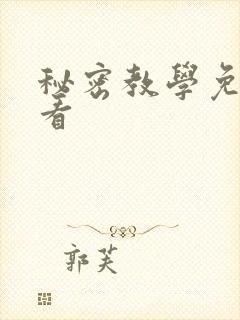 秘密教學免
看
郭芙